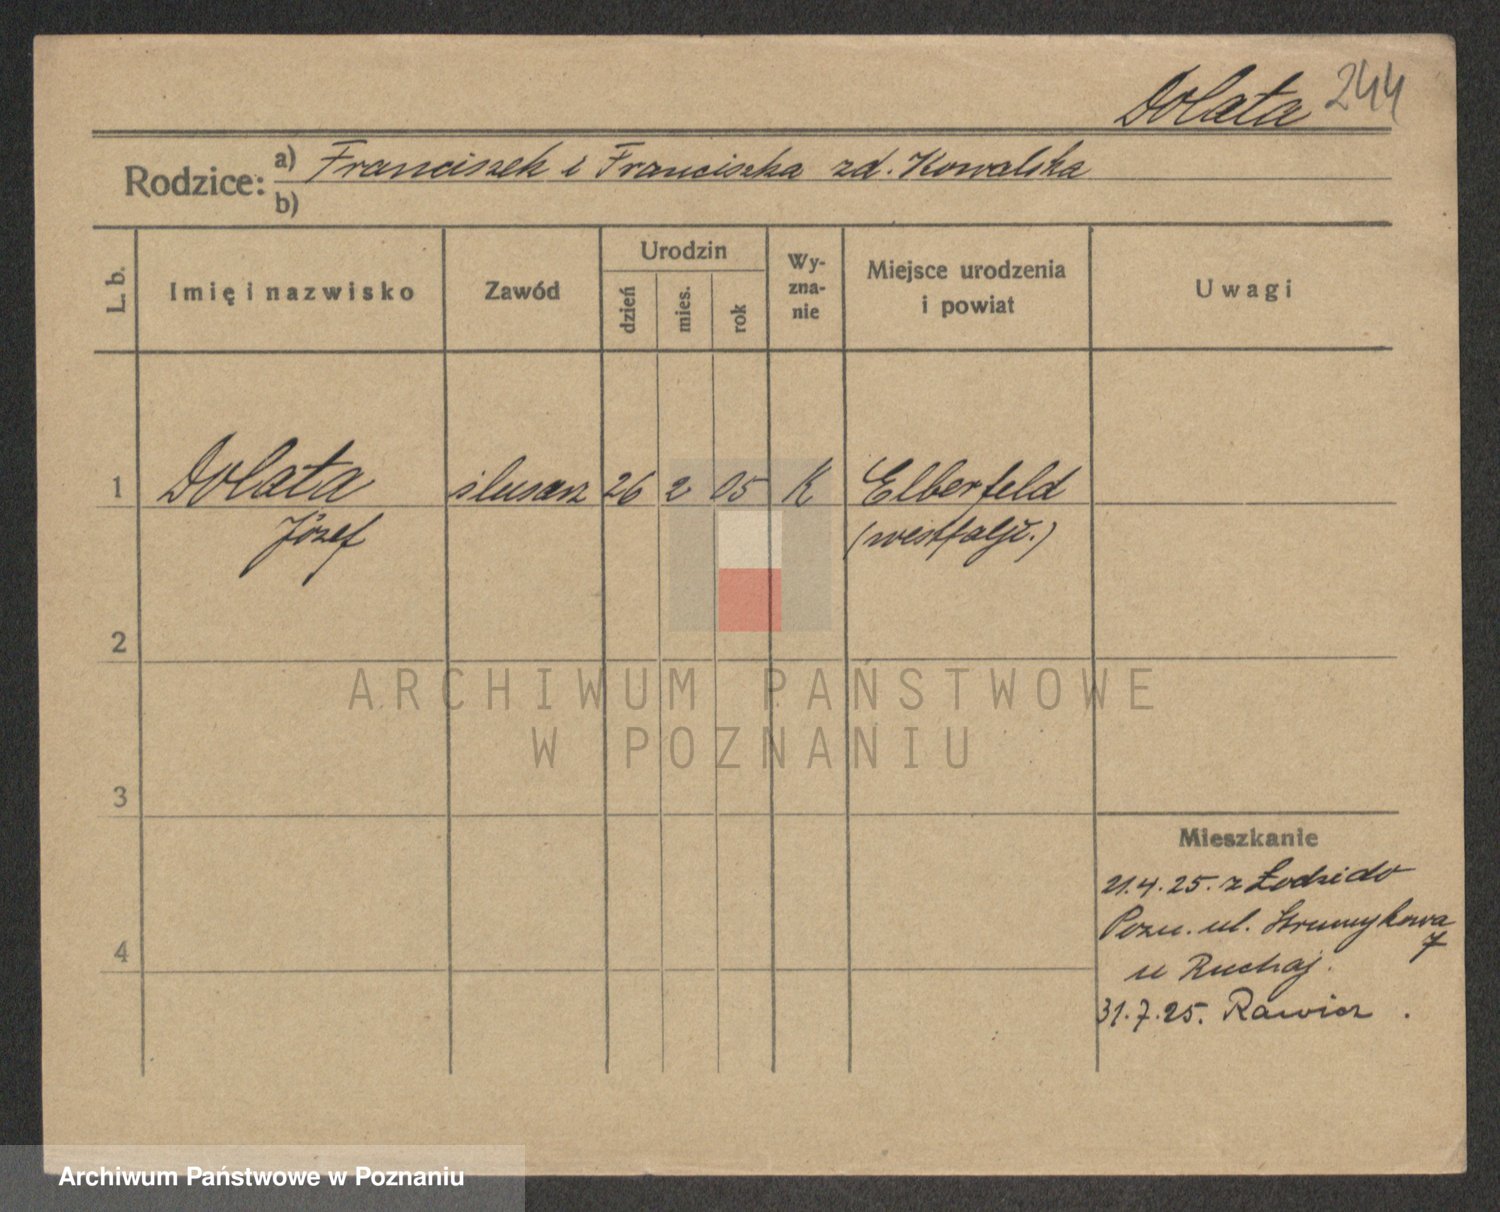 Dolata 244
Rodzice: a) Franciszek i Franciszka zd. Kowalska
b)
L. b.
Imię i nazwisko
Zawód
Urodzin
dzień
mies.
rok
Wy-
zna-
nie
Miejsce urodzenia
i powiat
Uwagi
1 Dolata ślusarz 26 2 05 K Elberfeld
Józef (westfalji.)
2
ARCHIWUM PAŃSTWOWE
W POZNANIU
3
Mieszkanie
21.4.25. z Łodzi do
Pozn. ul. Strumykowa
7
u Ruchaj.
4
31.7.25. Rawicz.
Archiwum Państwowe w Poznaniu